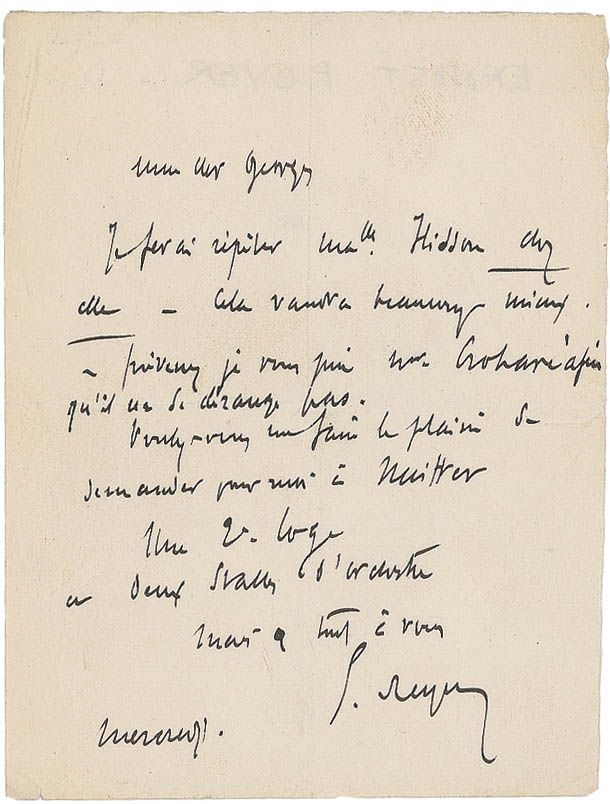 mon cher Georges
Je ferai répéter Mlle. Hisson chez
elle – Cela vaudra beaucoup mieux.
– prévenez je vous prie Mr
qu'il ne se dérange pas.
Voulez-vous me faire le plaisir de
demander pour moi à Nuitter
Une 2e. loge
et Deux Stalles d'orchestre
tout à vous
E. Reyer
Mercredi.